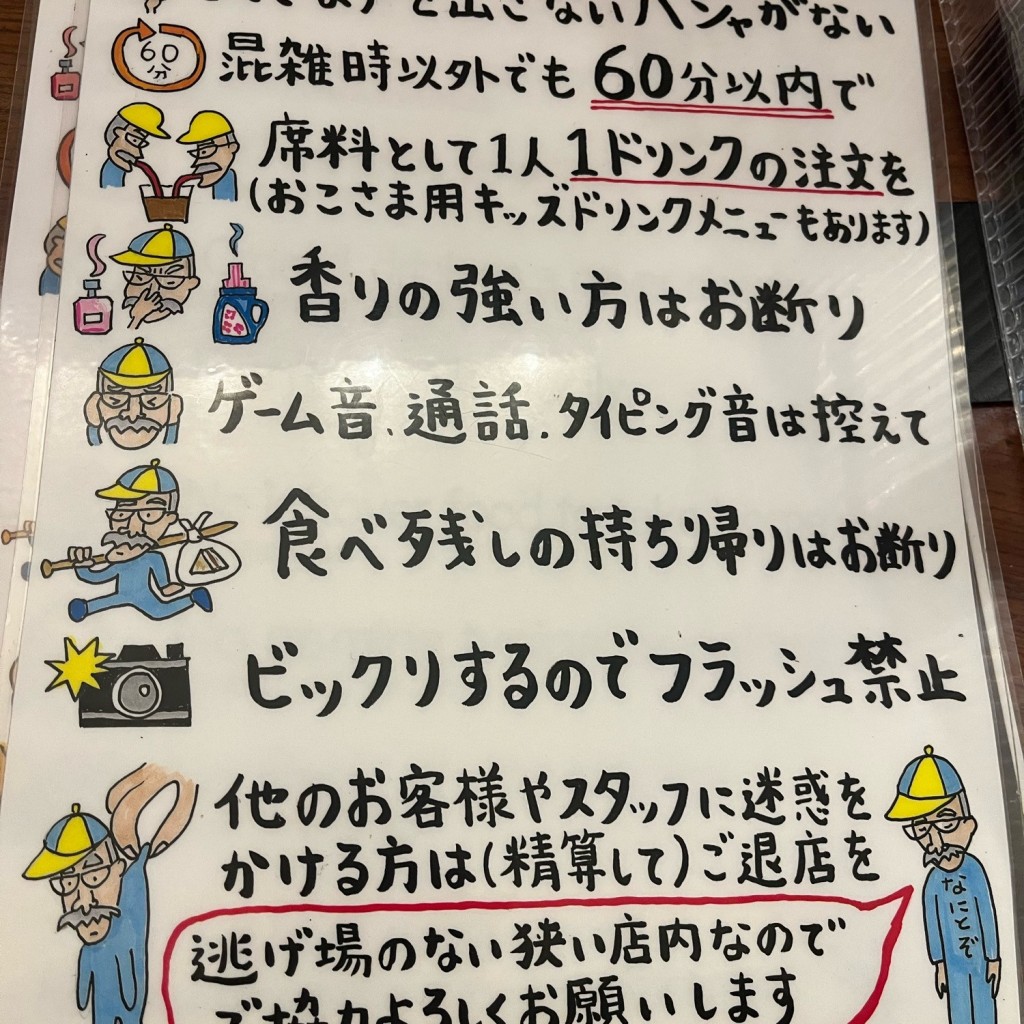 を出さないハシャがない
60分
混雑時以外でも60分以内で
席料として1人1ドリンクの注文を
(おこさま用キッズドリンクメニューもあります)
香りの強い方はお断り
ゲーム音、通話、タイピング音は控えて
食べ残しの持ち帰りはお断り
ビックリするのでフラッシュ禁止
他のお客様やスタッフに迷惑を
かける方は(精算して)ご退店を
なにとぞ
逃げ場のない狭い店内なので
ご協力よろしくお願いします